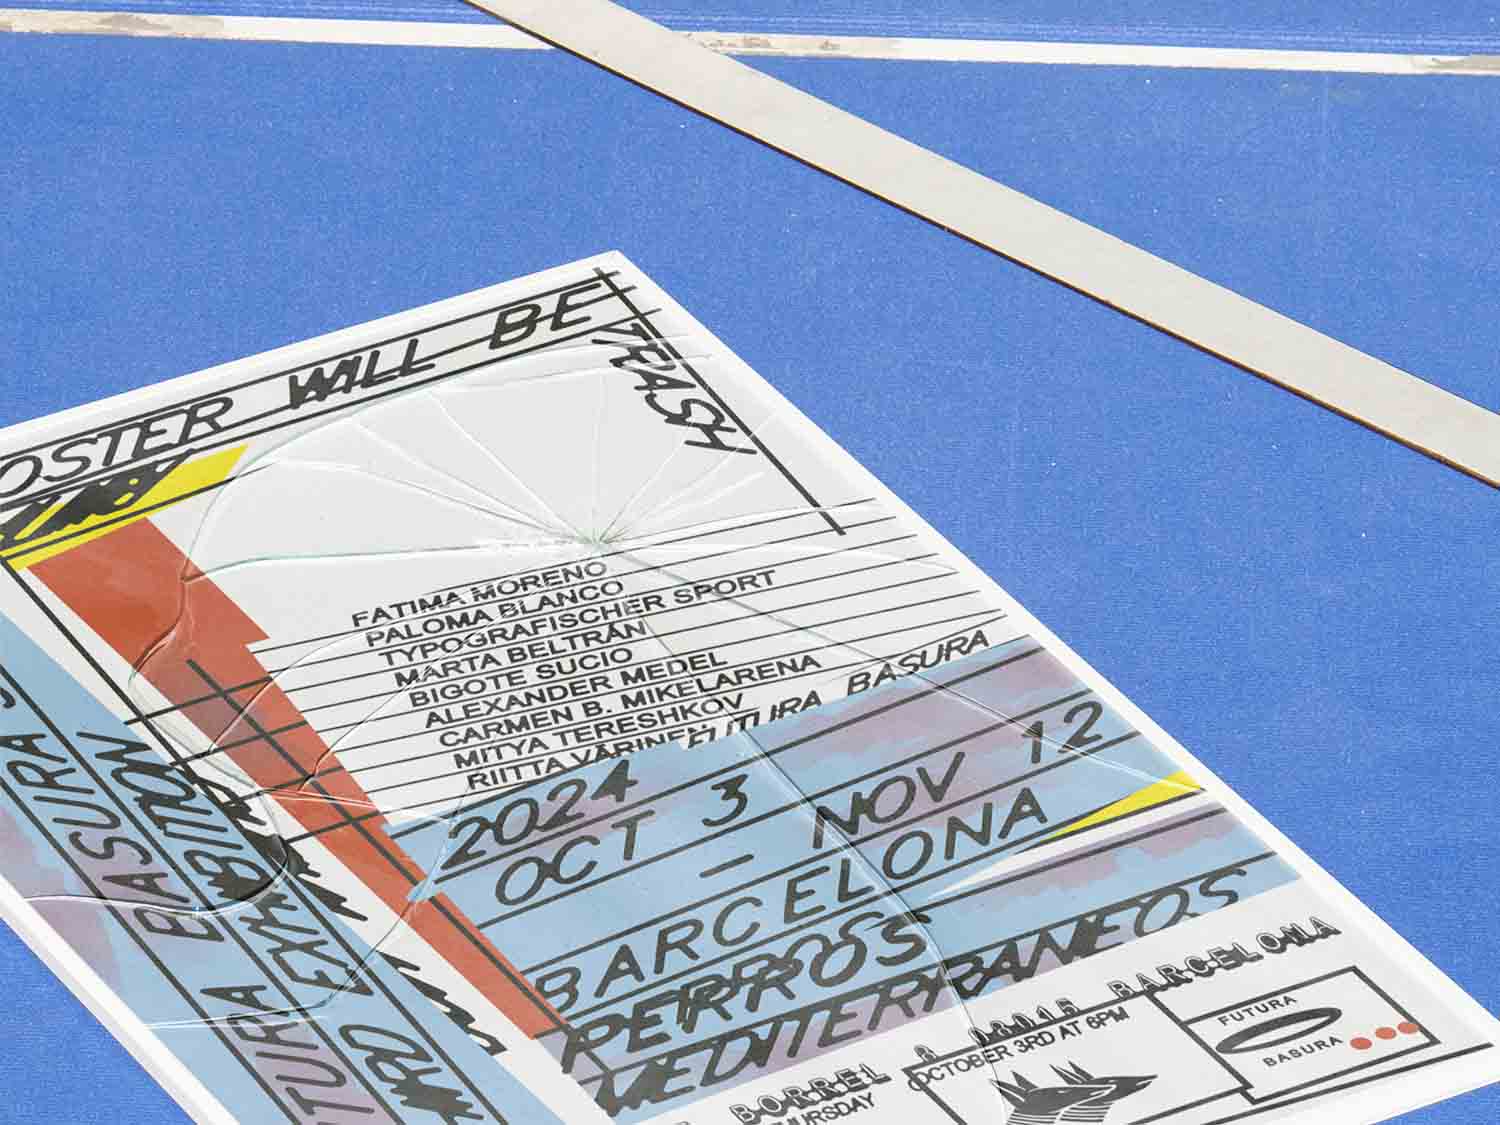 OSTER WILL BE TRASH
FATIMA MORENO
PALOMA BLANCO
TYPOGRAFISCHER SPORT
MARTA BELTRÁN
BIGOTE SUCIO
ALEXANDER MEDEL
CARMEN B. MIKELARENA
MITYA TERESHKOV
RIITTA VÄRINEN
FUTURA BASURA
2024
OCT 3 – NOV 12
BARCELONA
PERROS
MEDITERRANEOS
BORRELL 8 08015 BARCELONA
THURSDAY OCTOBER 3RD AT 6PM
FUTURA
BASURA
BASURA
TURA EXHIBITION